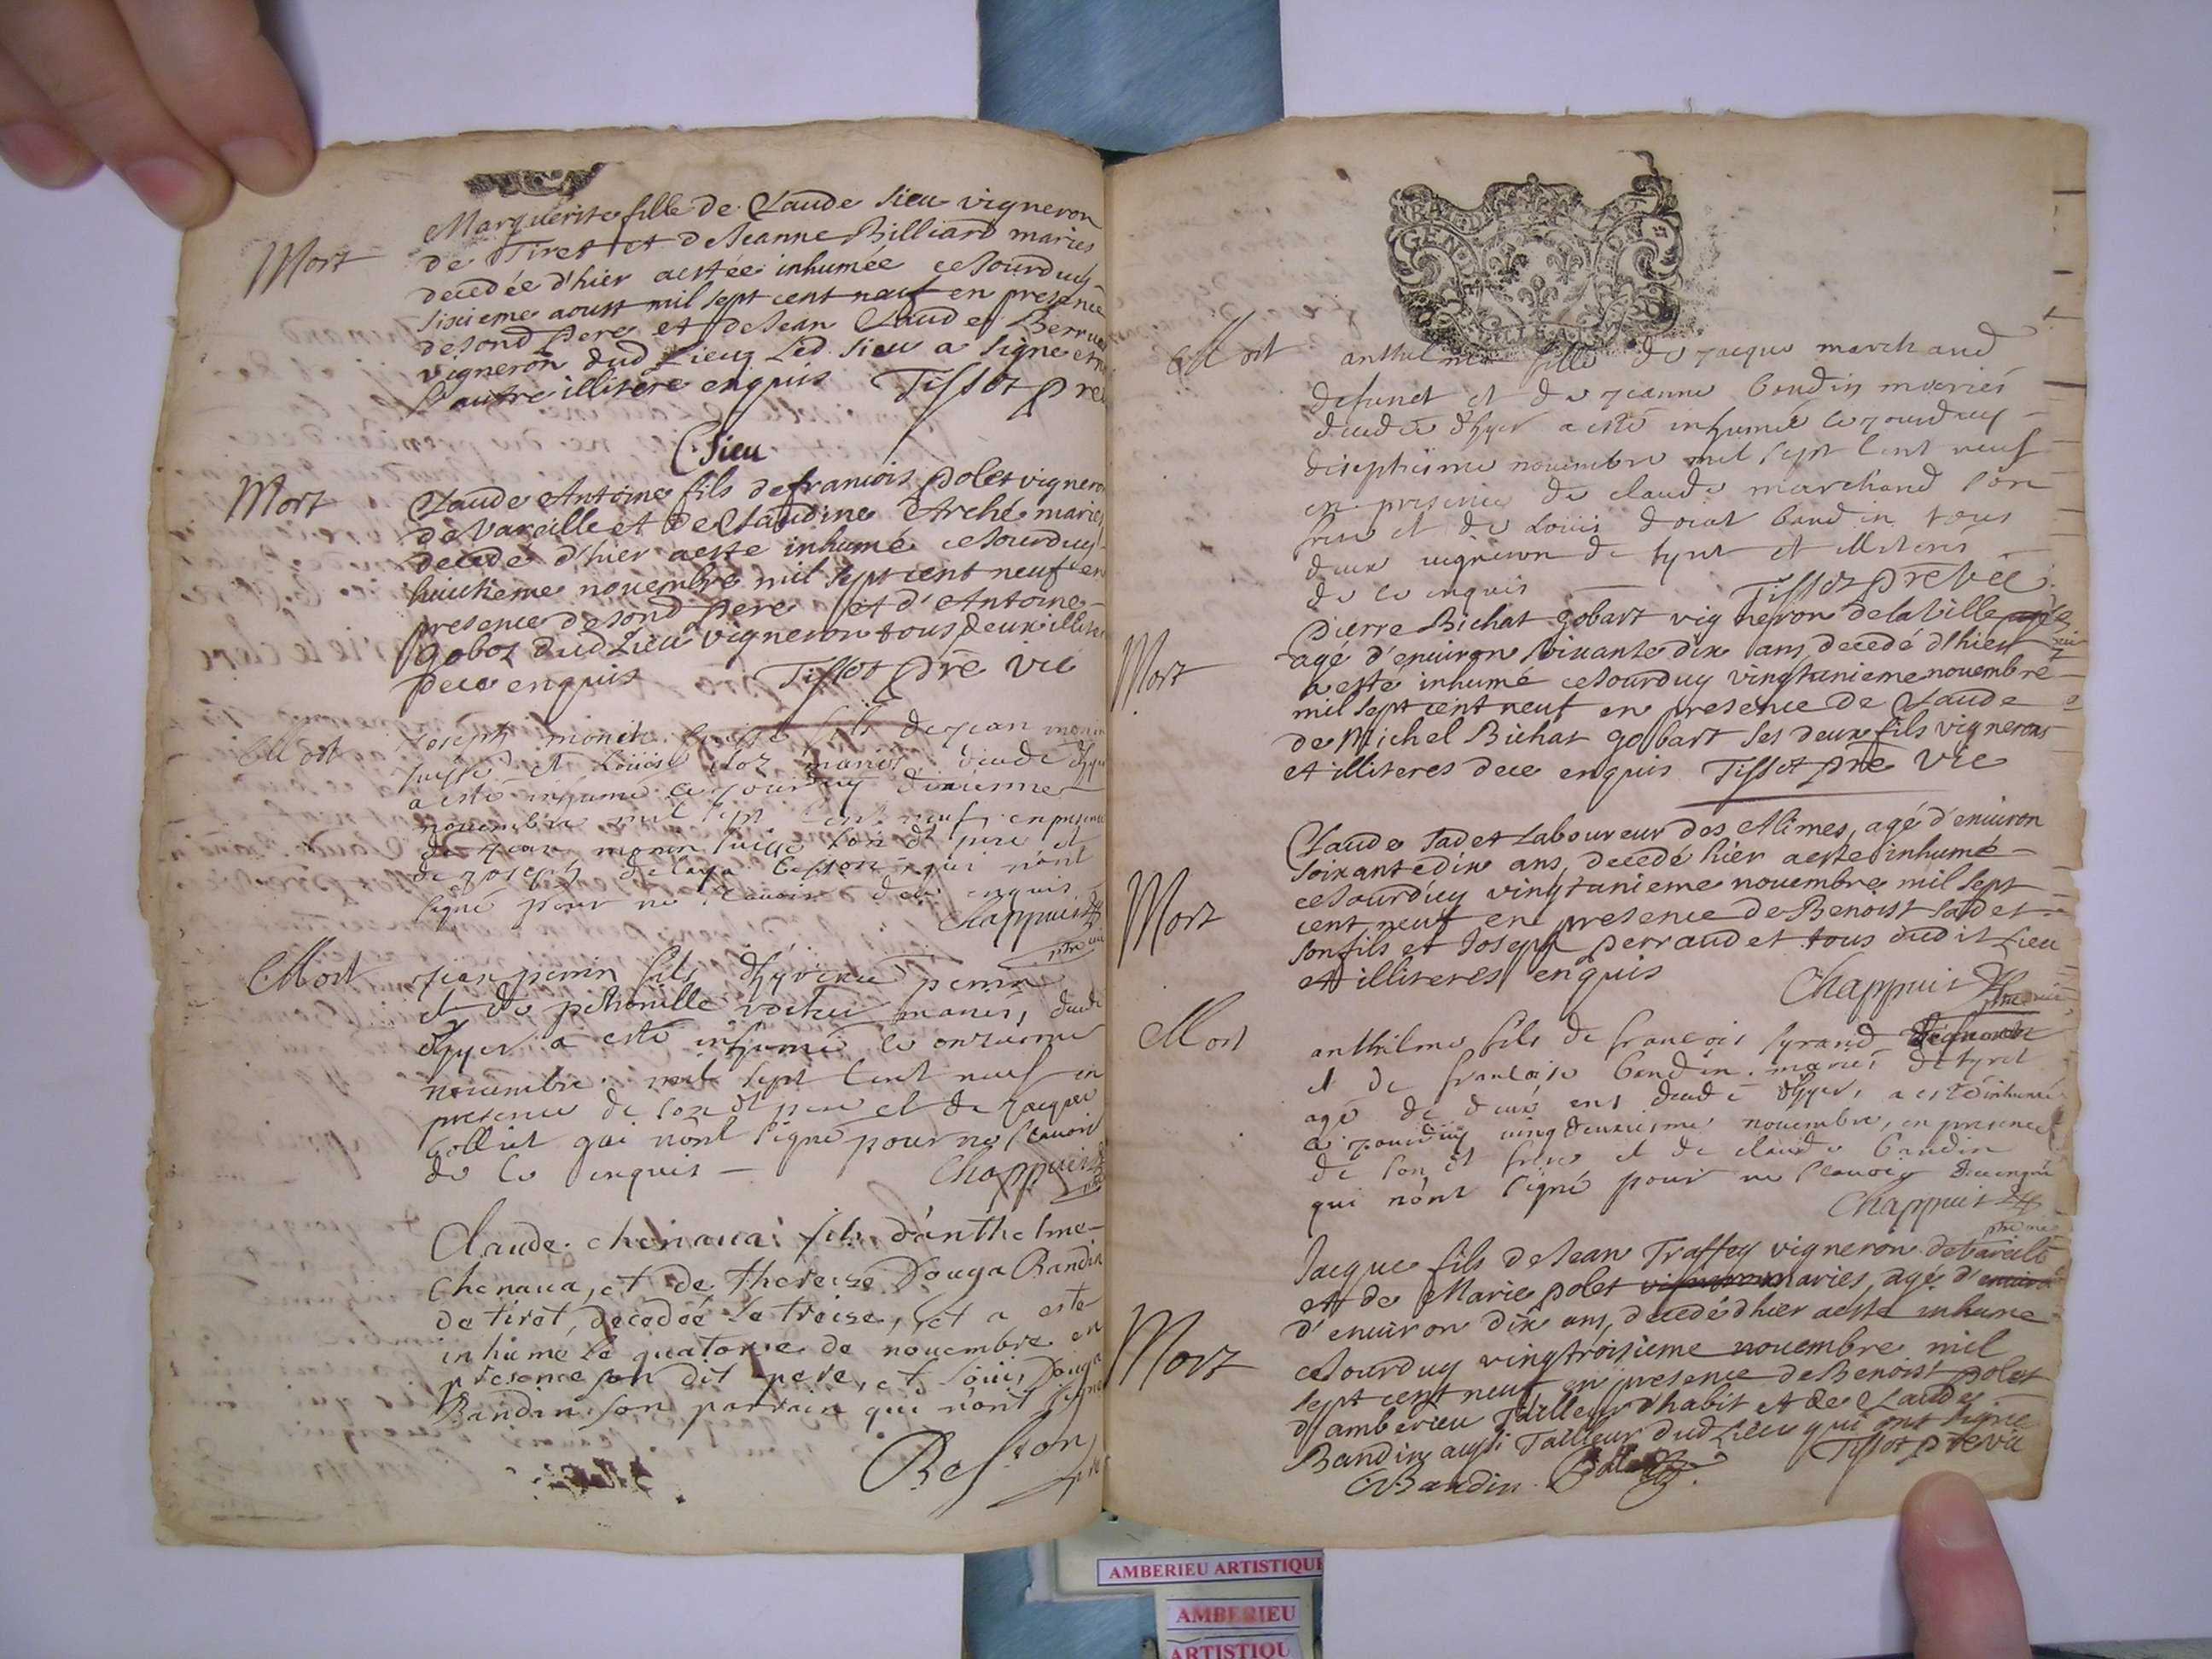 Mort
Marguerite fille de Claude Sieu vigneron
de Tiret et de Jeanne Billiard maries
decedée d'hier aestée inhumée ceJourduy
Sixieme aoust mil sept cent neuf en presence
desond Pere et de Jean Claude
vigneron dud Lieu Led. Sieu a signe et
l'autre illitere enquis Tissot pre
Sieu
Mort
Claude Antoine fils de francois polet vigneron
de Vareille et de Claudine Arché maries
decedé d'hier aeste inhumé ceJourduy
huictieme novembre mil sept cent neuf en
presence desond pere et d'Antoine
Gobot dud Lieu vigneron tous deux
dece enquis Tissot pre vic
Mort
Joseph monin suisse fils de jean monin
suisse et mariés
a esté inhumé ce jourduy dixieme
novembre mil sept cent neuf en presence
de jean monin suisse son dt pere et
de joseph qui nont
signé pour ne scavoir de enquis
Chappuis
ptre vic
Mort
jean perrin fils perrin
et de pethronille mariés,
dhyer a esté inhumé ce onzieme
novembre mil sept cent neuf en
presence de son dt pere et de jacque
Colliet qui nont signé pour ne scavoir
de ce enquis Chappuis
Claude chenaua fils d'anthelme
Chenaua, et de thereize Douga Bandin
de tiret, decedée le treise, et a este
inhumé le quatorse de novembre en
presence son dit pere, et Loüis Douga
Bandin son parrain qui n'ont signé
Besson
Mort
fille de jacque marchand
defunct et de jeanne bondin mariés
decedée dhyer a esté inhumée ce jourduy
diseptiesme novembre mil sept cent neuf
en presence de claude marchand son
frere et de Loüis doiat bandin tous
deux vigneron de tyret et
de ce enquis Tissot pre vic
Mort
Pierre Bichat gobart vigneron de la Ville
agé d'environ soixante dix ans, decedé d'hier
a este inhumé ceJourduy vingtunieme novembre
mil sept cent neuf en presence de Claude
de Michel Bichat gobart ses deux fils vignerons
et illiteres dece enquis Tissot pre vic
Mort
Claude Sadet Laboureur des Alimes, agé d'environ
soixantedix ans, decedé hier aeste inhumé
ceJourduy vingtunieme novembre mil sept
cent neuf en presence de Benoist Sadet
son fils et Joseph perraudet tous dudit Lieu
et illiteres enquis Chappuis
ptre vic
Mort
anthelme fils de francois
et de francoise bandin mariés de tyret
agé de deux ans dhyer, a esté inhumé
ce jourduy vingdeuxiesme novembre, en presence
de son dt frere et de claude bandin
qui nont signé pour ne scavoir
Chappuis
ptre vic
Mort
Jacque fils de Jean Traffey vigneron de Vareille
et de Marie polet maries, agé
d'environ dix ans, decedé d'hier aeste inhume
ceJourduy vingtroisieme novembre mil
sept cent neuf en presence de Benoist polet
d'amberieu Tailleur d'habit et de Claude
Bandin aussi Tailleur dud Lieu qui ont signe
Tissot pre vic
C Bandin
AMBERIEU ARTISTIQUE
AMBERIEU
ARTISTIQU